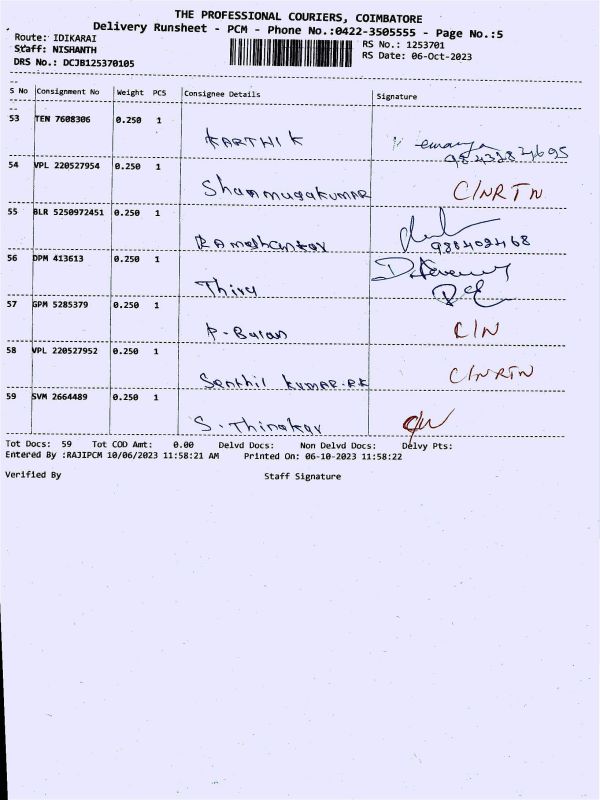 THE PROFESSIONAL COURIERS, COIMBATORE
Delivery Runsheet - PCM - Phone No.:0422-3505555 - Page No.:5
Route: IDIKARAI
RS No.: 1253701
Staff: NISHANTH
RS Date: 06-Oct-2023
DRS No.: DCJB125370105
S No Consignment No Weight PCS Consignee Details Signature
53 TEN 7608306 0.250 1
KARTHIK
54 VPL 220527954 0.250 1
Shanmugakumar C/NRTN
55 BLR 5250972451 0.250 1
56 DPM 413613 0.250 1
Thiru
57 GPM 5285379 0.250 1
P. Balan C/N
58 VPL 220527952 0.250 1
Senthil kumar.RK C/NRTN
59 SVM 2664489 0.250 1
S. Thinakar
Tot Docs: 59 Tot COD Amt: 0.00 Delvd Docs: Non Delvd Docs: Delvy Pts:
Entered By :RAJIPCM 10/06/2023 11:58:21 AM Printed On: 06-10-2023 11:58:22
Verified By Staff Signature